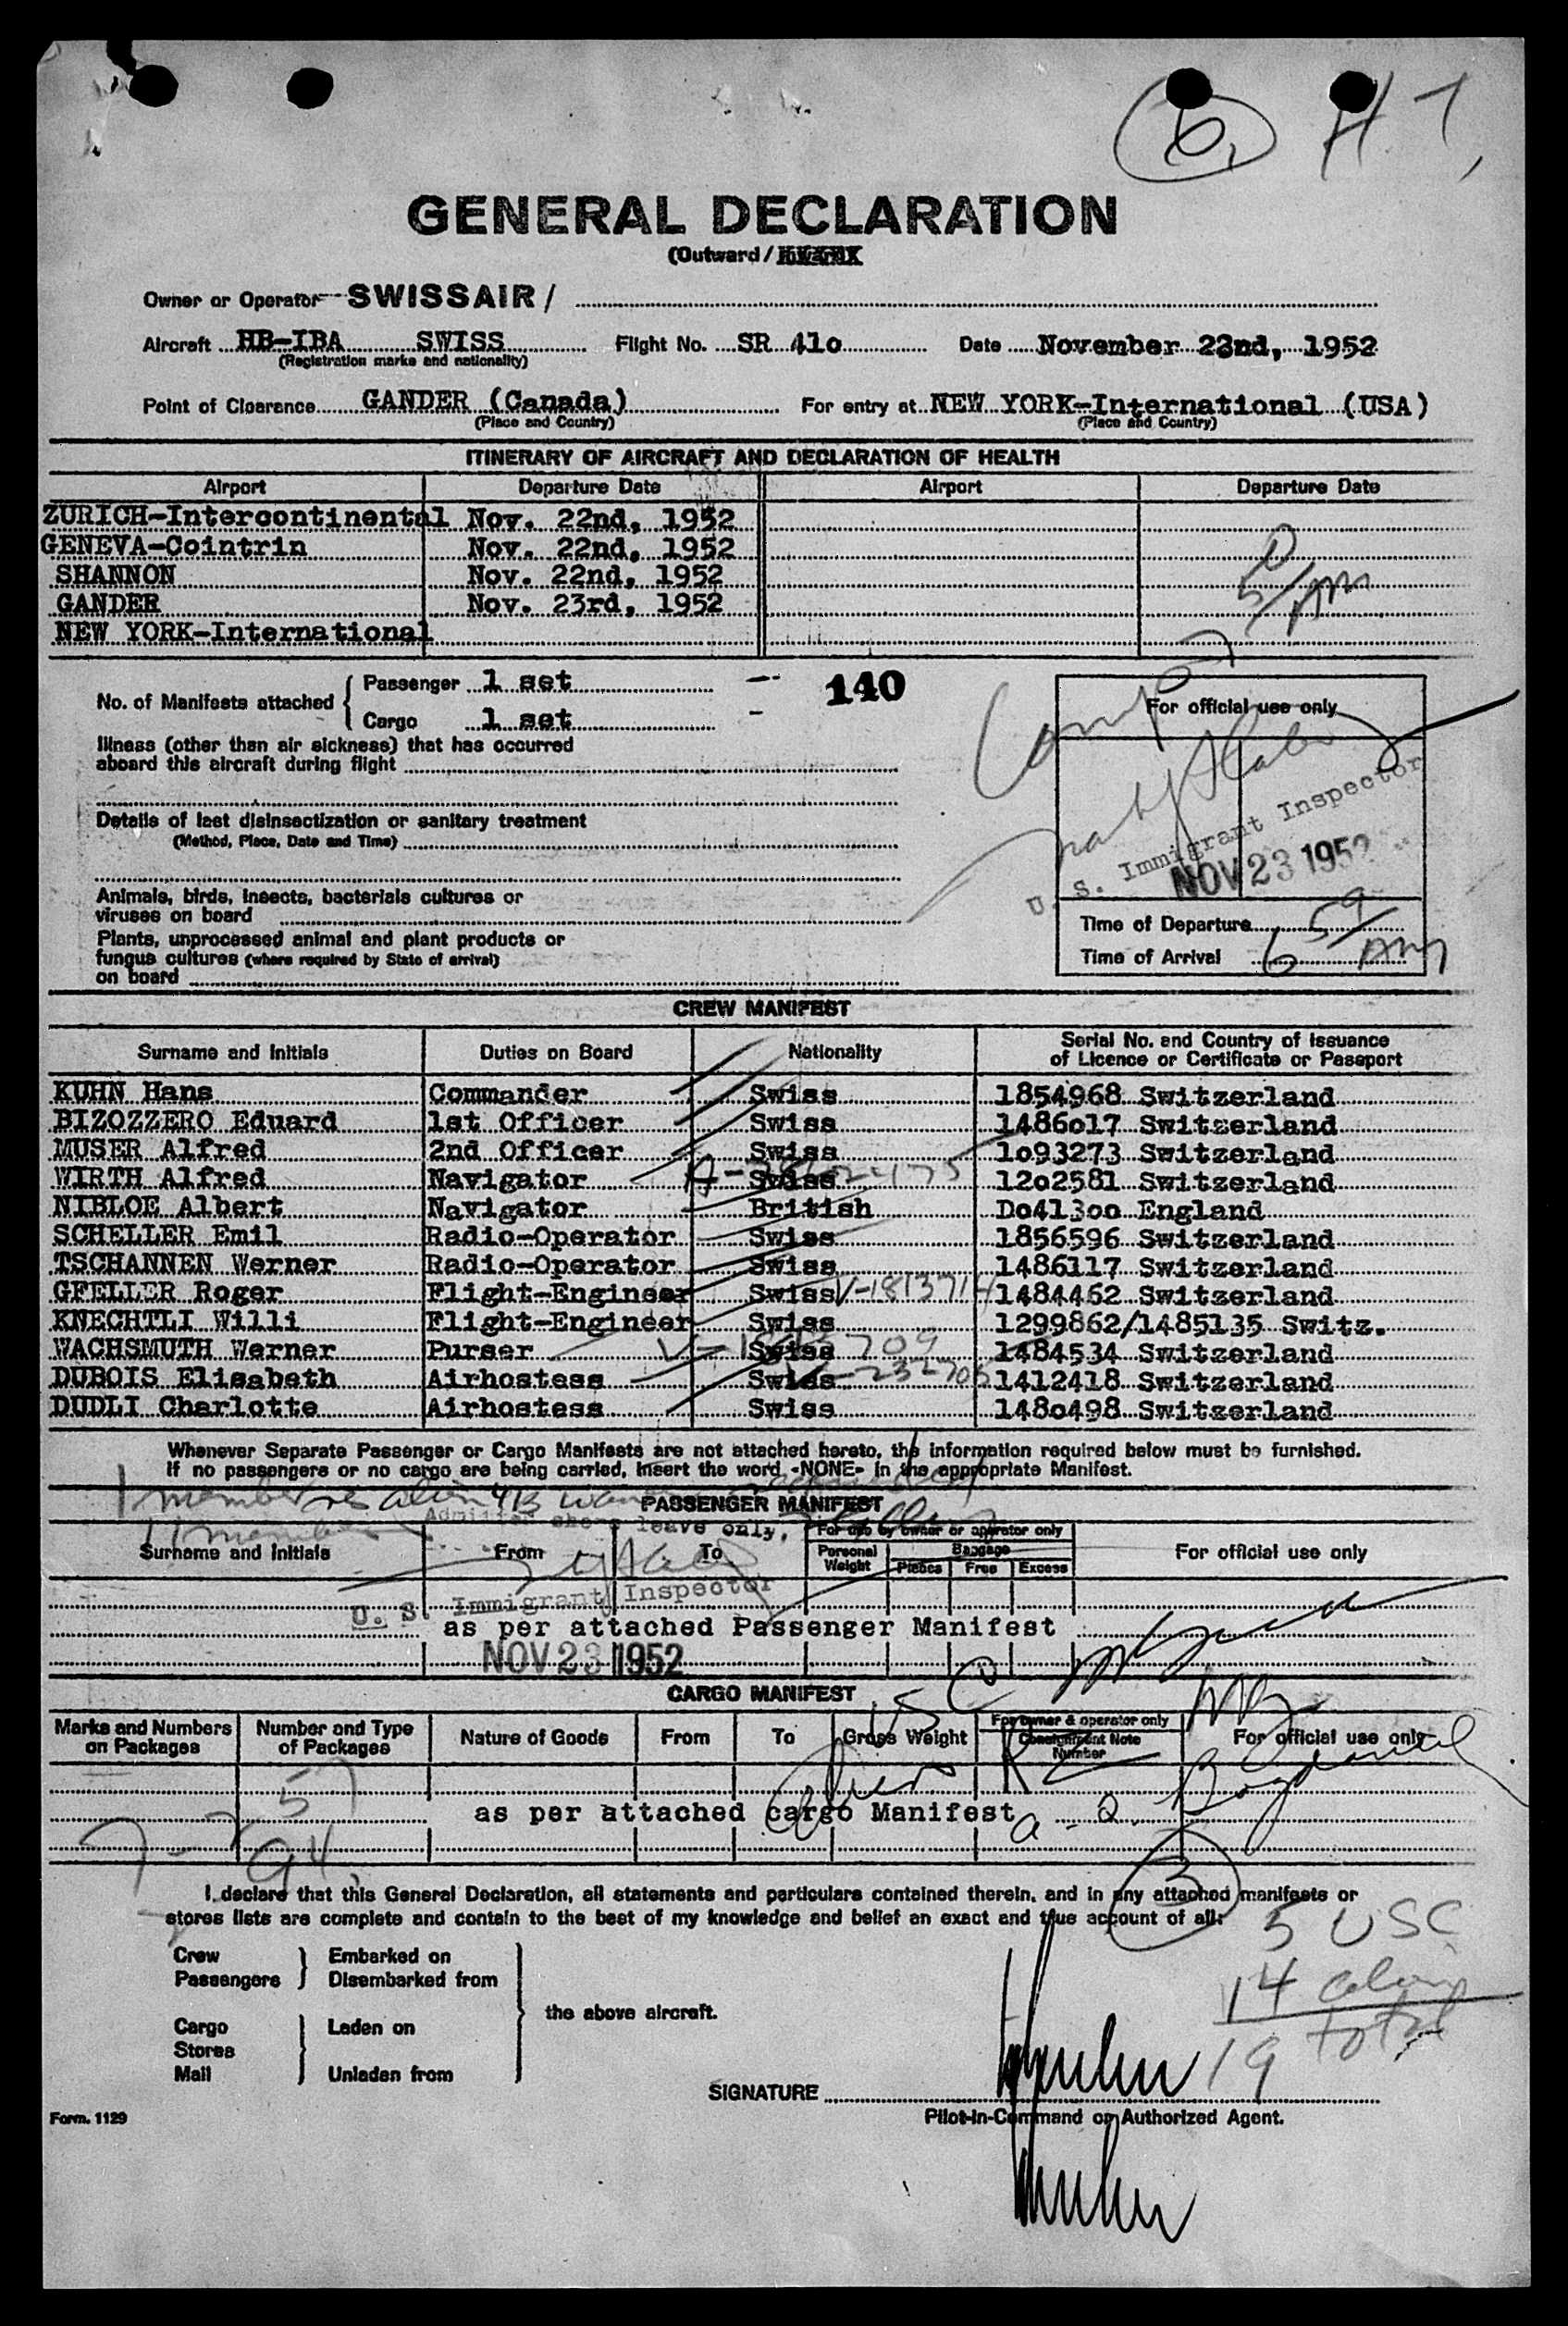 6, H 7,
GENERAL DECLARATION
(Outward/
Owner or Operator SWISSAIR/
Aircraft HB-IBA SWISS Flight No. SR 41o Date November 22nd, 1952
(Registration marks and nationality)
Point of Clearance GANDER (Canada) For entry at NEW YORK-International (USA)
(Place and Country) (Place and Country)
ITINERARY OF AIRCRAFT AND DECLARATION OF HEALTH
Airport Departure Date Airport Departure Date
ZURICH-Intercontinental Nov. 22nd, 1952
GENEVA-Cointrin Nov. 22nd, 1952
SHANNON Nov. 22nd, 1952
GANDER Nov. 23rd, 1952
NEW YORK-International
No. of Manifests attached { Passenger 1 set — 140
Cargo 1 set -
For official use only
Illness (other than air sickness) that has occurred
aboard this aircraft during flight
Details of last disinsectization or sanitary treatment
(Method, Place, Date and Time)
U. S. Immigrant Inspector
NOV 23 1952
Animals, birds, insects, bacterials cultures or
viruses on board
Time of Departure
Plants, unprocessed animal and plant products or
fungus cultures (where required by State of arrival)
on board
Time of Arrival 6 59 AM
CREW MANIFEST
Surname and Initials Duties on Board Nationality Serial No. and Country of Issuance
of Licence or Certificate or Passport
KUHN Hans Commander Swiss 1854968 Switzerland
BIZOZZERO Eduard 1st Officer Swiss 1486o17 Switzerland
MUSER Alfred 2nd Officer Swiss 1o93273 Switzerland
WIRTH Alfred Navigator Swiss 12o2581 Switzerland
NIBLOE Albert Navigator British Do413oo England
SCHELLER Emil Radio-Operator Swiss 1856596 Switzerland
TSCHANNEN Werner Radio-Operator Swiss 1486117 Switzerland
GFELLER Roger Flight-Engineer Swiss V-1813714 1484462 Switzerland
KNECHTLI Willi Flight-Engineer Swiss 1299862/1485135 Switz.
WACHSMUTH Werner Purser Swiss 1484534 Switzerland
DUBOIS Elisabeth Airhostess Swiss 1412418 Switzerland
DUDLI Charlotte Airhostess Swiss 148o498 Switzerland
Whenever Separate Passenger or Cargo Manifests are not attached hereto, the information required below must be furnished.
If no passengers or no cargo are being carried, insert the word -NONE- in the appropriate Manifest.
1 member res alien
PASSENGER MANIFEST
11 members
Admitted shore leave only,
For use by owner or operator only
Surname and Initials From To Personal Weight Baggage Pieces Free Excess For official use only
U. S. Immigrant Inspector
as per attached Passenger Manifest
NOV 23 1952
CARGO MANIFEST
Marks and Numbers on Packages Number and Type of Packages Nature of Goods From To Gross Weight For owner & operator only Consignment Note Number For official use only
as per attached cargo Manifest
I declare that this General Declaration, all statements and particulars contained therein, and in any attached manifests or
stores lists are complete and contain to the best of my knowledge and belief an exact and true account of all:
3
5 USC
14 aliens
19 total
Crew } Embarked on
Passengers } Disembarked from
the above aircraft.
Cargo } Laden on
Stores
Mail } Unladen from
SIGNATURE
Form. 1129
Pilot-in-Command or Authorized Agent.